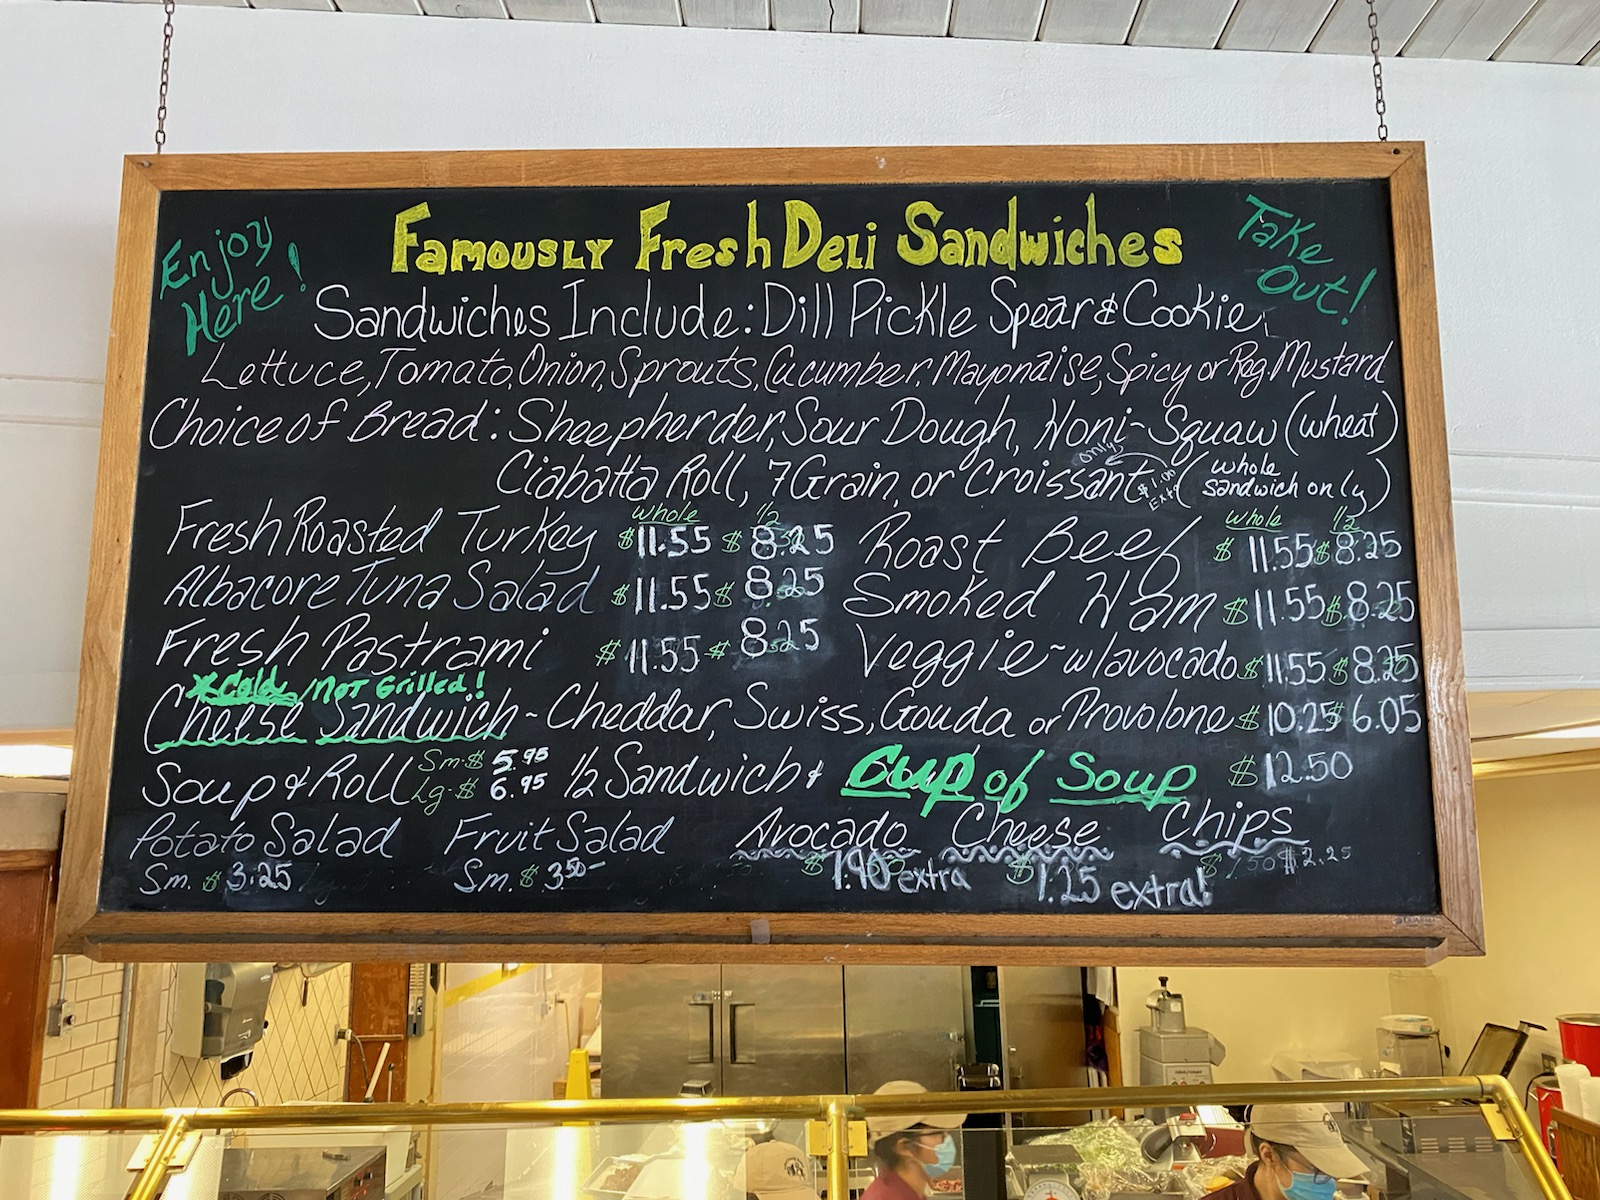 Enjoy Here!
Famously Fresh Deli Sandwiches
Take Out!
Sandwiches Include: Dill Pickle Spear & Cookie,
Lettuce, Tomato, Onion, Sprouts, Cucumber, Mayonaise, Spicy or Reg. Mustard
Choice of Bread: Sheepherder, Sour Dough, Honi-Squaw (wheat)
Ciabatta Roll, 7 Grain, or Croissant (whole sandwich only)
only $1.00 Extra
whole 1/2 whole 1/2
Fresh Roasted Turkey $11.55 $8.25 Roast Beef $11.55 $8.25
Albacore Tuna Salad $11.55 $8.25 Smoked Ham $11.55 $8.25
Fresh Pastrami $11.55 $8.25 Veggie~w/avocado $11.55 $8.25
*Cold, Not Grilled!
Cheese Sandwich - Cheddar, Swiss, Gouda or Provolone $10.25 $6.05
Soup & Roll Sm. $5.95 Lg. $6.95 1/2 Sandwich & Cup of Soup $12.50
Potato Salad Fruit Salad Avocado Cheese Chips
Sm. $3.25 Sm. $3.50 $1.90 extra $1.25 extra! $2.25